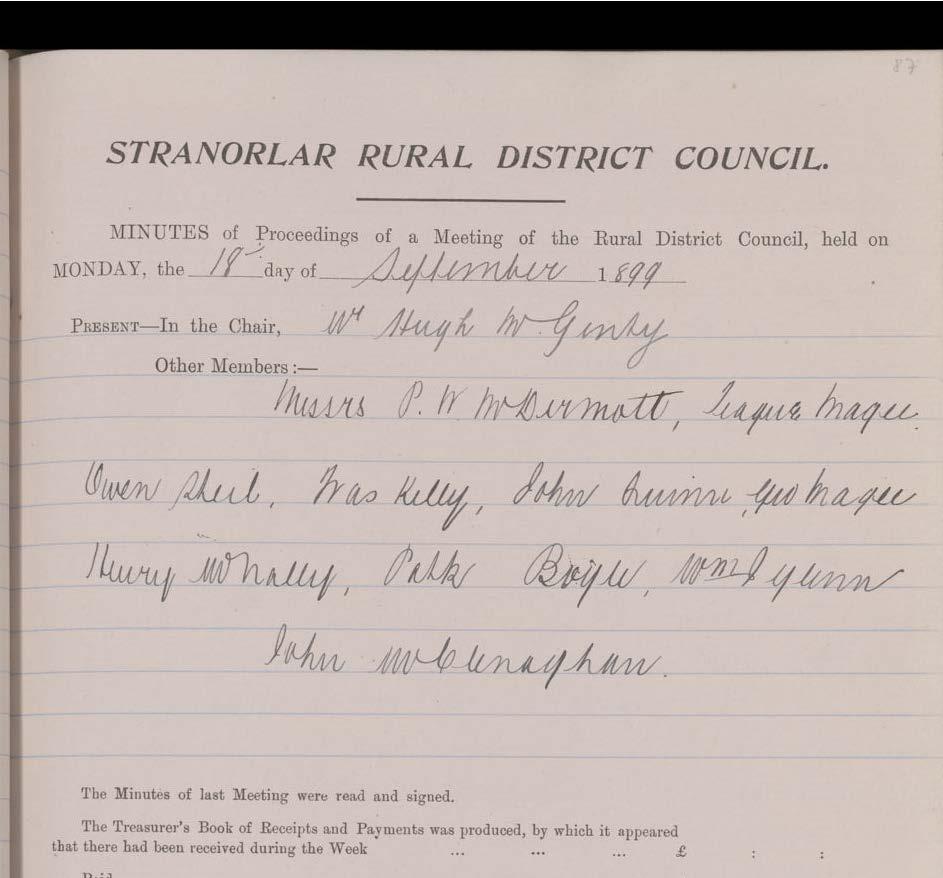 87
STRANORLAR RURAL DISTRICT COUNCIL.
MINUTES of Proceedings of a Meeting of the Rural District Council, held on
MONDAY, the 18 day of September 1899
PRESENT—In the Chair, Mr Hugh McGinty
Other Members:—
Messrs P. W McDermott, Teague Magee.
Owen Sheil, Fras Kelly, John Quinn, Geo Magee
Henry McNally, Patk Boyle, Wm Flynn
John McClenaghan.
The Minutes of last Meeting were read and signed.
The Treasurer's Book of Receipts and Payments was produced, by which it appeared
that there had been received during the Week ... ... ... £ : :
Paid